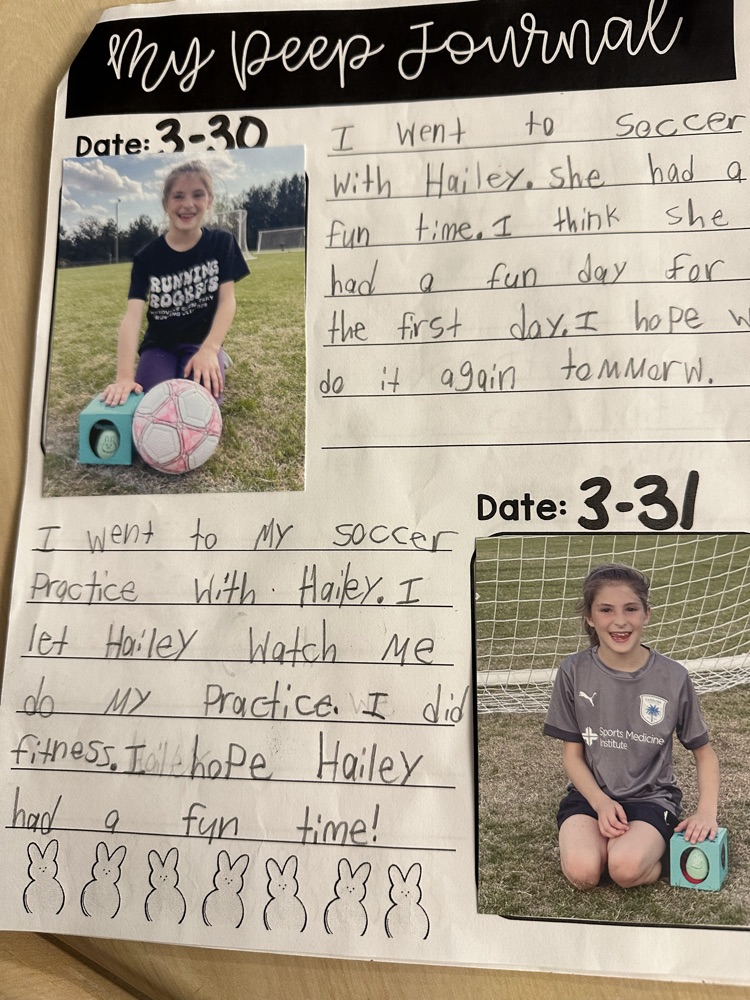 My Peep Journal
Date: 3-30
I went to soccer
with Hailey. she had a
fun time. I think she
had a fun day for
the first day. I hope w
do it again tommorw.
RUNNING
ROGUES
Date: 3-31
I went to My soccer
Practice With. Hailey. I
let Hailey Watch Me
do My Practice. I did
fitness. I hope Hailey
had a fun time!
Sports Medicine
Institute